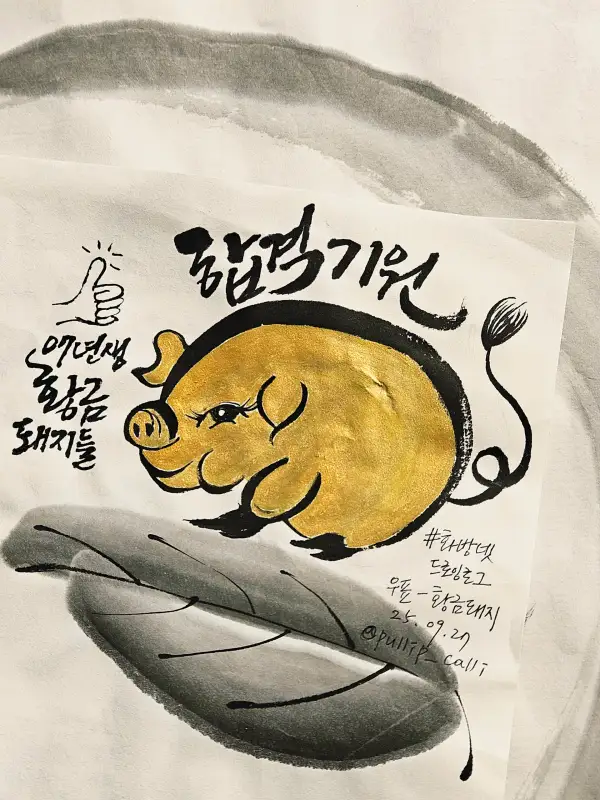 합격기원
07년생
황금
돼지들
#화방넷
드로잉로그
우표-황금돼지
25.09.27
@pullip_calli